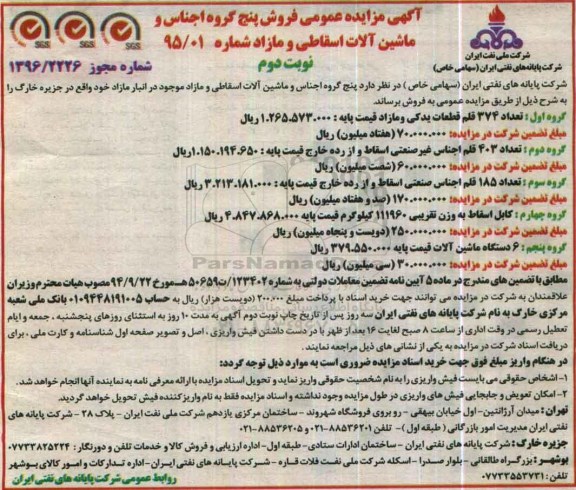 آگهی مزایده عمومی فروش پنج گروه اجناس و
ماشین آلات اسقاطی و مازاد شماره ۹۵/۰۱
نوبت دوم
شماره مجوز ۱۳۹۶/۲۲۲۶
SGS SGS SGS
شرکت ملی نفت ایران
شرکت پایانه های نفتی ایران (سهامی خاص)
شرکت پایانه های نفتی ایران (سهامی خاص) در نظر دارد پنج گروه اجناس و ماشین آلات اسقاطی و مازاد موجود در انبار مازاد خود واقع در جزیره خارگ را
به شرح ذیل از طریق مزایده عمومی به فروش برساند.
گروه اول: تعداد ۳۷۴ قلم قطعات یدکی ومازاد قیمت پایه : ۱.۲۶۵.۵۷۳.۰۰۰ ریال
مبلغ تضمین شرکت در مزایده: ۷۰.۰۰۰.۰۰۰ (هفتاد میلیون) ریال
گروه دوم : تعداد ۴۰۳ قلم اجناس غیرصنعتی اسقاط و از رده خارج قیمت پایه : ۱.۱۵۰.۱۹۴.۶۵۰ ریال
مبلغ تضمین شرکت در مزایده: ۶۰.۰۰۰.۰۰۰ (شصت میلیون) ریال
گروه سوم : تعداد ۱۸۵ قلم اجناس صنعتی اسقاط و از رده خارج قیمت پایه : ۳.۲۱۳.۱۸۱.۰۰۰ ریال
مبلغ تضمین شرکت در مزایده: ۱۷۰.۰۰۰.۰۰۰ (صد و هفتاد میلیون) ریال
گروه چهارم : کابل اسقاط به وزن تقریبی ۱۱۱۹۶۰ کیلوگرم قیمت پایه ۴.۸۴۷.۸۶۸.۰۰۰ ریال
مبلغ تضمین شرکت در مزایده: ۲۵۰.۰۰۰.۰۰۰ (دویست و پنجاه میلیون) ریال
گروه پنجم : ۶ دستگاه ماشین آلات قیمت پایه ۳۷۹.۵۵۰.۰۰۰ ریال
مبلغ تضمین شرکت در مزایده: ۳۰.۰۰۰.۰۰۰ (سی میلیون) ریال
مطابق با تضمین های مندرج در ماده ۵ آیین نامه تضمین معاملات دولتی به شماره ۱۲۳۴۰۲/ت۵۰۶۵۹هـ مورخ ۹۴/۹/۲۲ مصوب هیات محترم وزیران
علاقمندان به شرکت در مزایده می توانند جهت خرید اسناد با پرداخت مبلغ ۲۰۰.۰۰۰ (دویست هزار) ریال به حساب ۰۱۰۹۴۴۸۱۹۱۰۰۵ بانک ملی شعبه
مرکزی خارگ به نام شرکت پایانه های نفتی ایران سه روز پس از تاریخ چاپ نوبت دوم آگهی به مدت ۱۰ روز به استثنای روزهای پنجشنبه ، جمعه و ایام
تعطیل رسمی در وقت اداری از ساعت ۸ صبح لغایت ۱۶ بعد از ظهر با در دست داشتن فیش واریزی ، اصل و تصویر صفحه اول شناسنامه و کارت ملی ، برای
دریافت اسناد شرکت در مزایده به یکی از نشانی های ذیل مراجعه نمایند.
در هنگام واریز مبلغ فوق جهت خرید اسناد مزایده ضروری است به موارد ذیل توجه گردد:
۱- اشخاص حقوقی می بایست فیش واریزی را به نام شخصیت حقوقی واریز نماید و تحویل اسناد مزایده با ارائه معرفی نامه به نماینده آنها انجام خواهد شد.
۲- امکان تعویض و جابجایی فیش های واریزی در طول مزایده وجود نداشته و اسناد مزایده فقط به نام واریز کننده فیش تحویل خواهد گردید.
تهران : میدان آرژانتین - اول خیابان بیهقی - روبروی فروشگاه شهروند - ساختمان مرکزی یازدهم شرکت ملی نفت ایران - پلاک ۲۸ - شرکت پایانه های
نفتی ایران مدیریت امور بازرگانی ( طبقه اول ) - تلفن : ۸۸۵۳۶۲۰۱-۰۲۱ و ۸۸۵۳۶۲۰۵-۰۲۱
جزیره خارگ: شرکت پایانه های نفتی ایران - ساختمان ادارات ستادی - طبقه اول - اداره ارزیابی و فروش کالا و خدمات تلفن و دورنگار : ۰۷۷۳۳۸۲۵۲۲۴
بوشهر : بزرگراه طالقانی - بلوار صدرا - اسکله شرکت ملی نفت فلات قاره - شرکت پایانه های نفتی ایران - اداره تدارکات و امور کالای بوشهر
تلفن : ۰۷۷۳۳۵۵۳۷۳۱
روابط عمومی شرکت پایانه های نفتی ایران